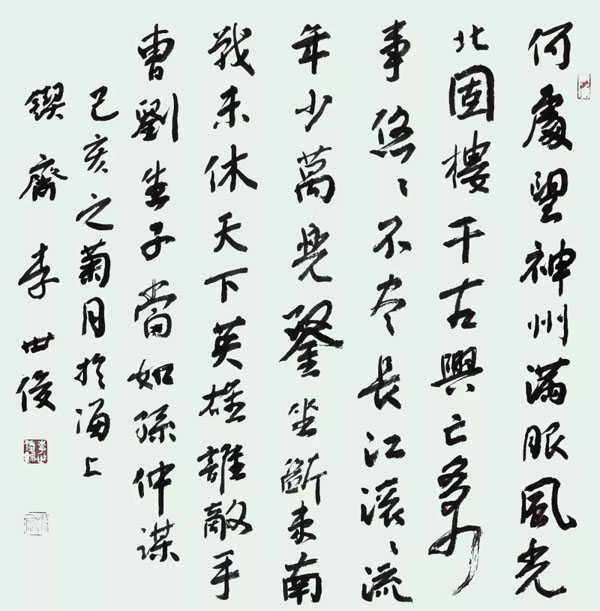 何處望神州滿眼風光
北固樓千古興亡多少
事悠〻不尽長江滚〻流
年少萬兜鍪坐斷東南
戰未休天下英雄誰敵手
曹劉生子當如孫仲謀
己亥之菊月於海上
鍥齋李世俊